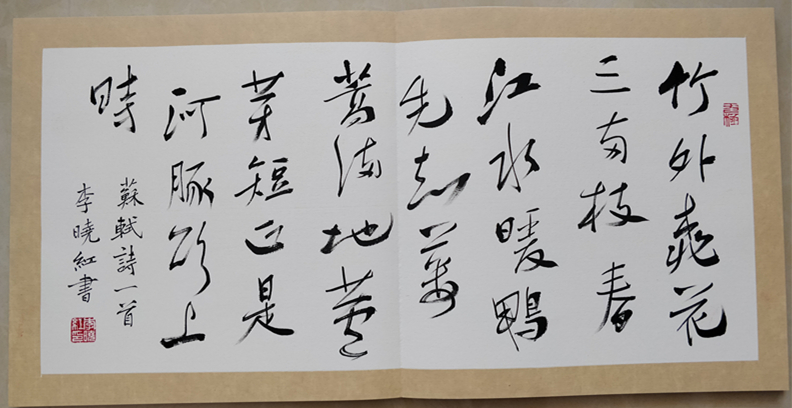 竹外桃花
三兩枝春
江水暖鴨
先知蔞
蒿滿地蘆
芽短正是
河豚欲上
時
蘇軾詩一首
李曉紅書